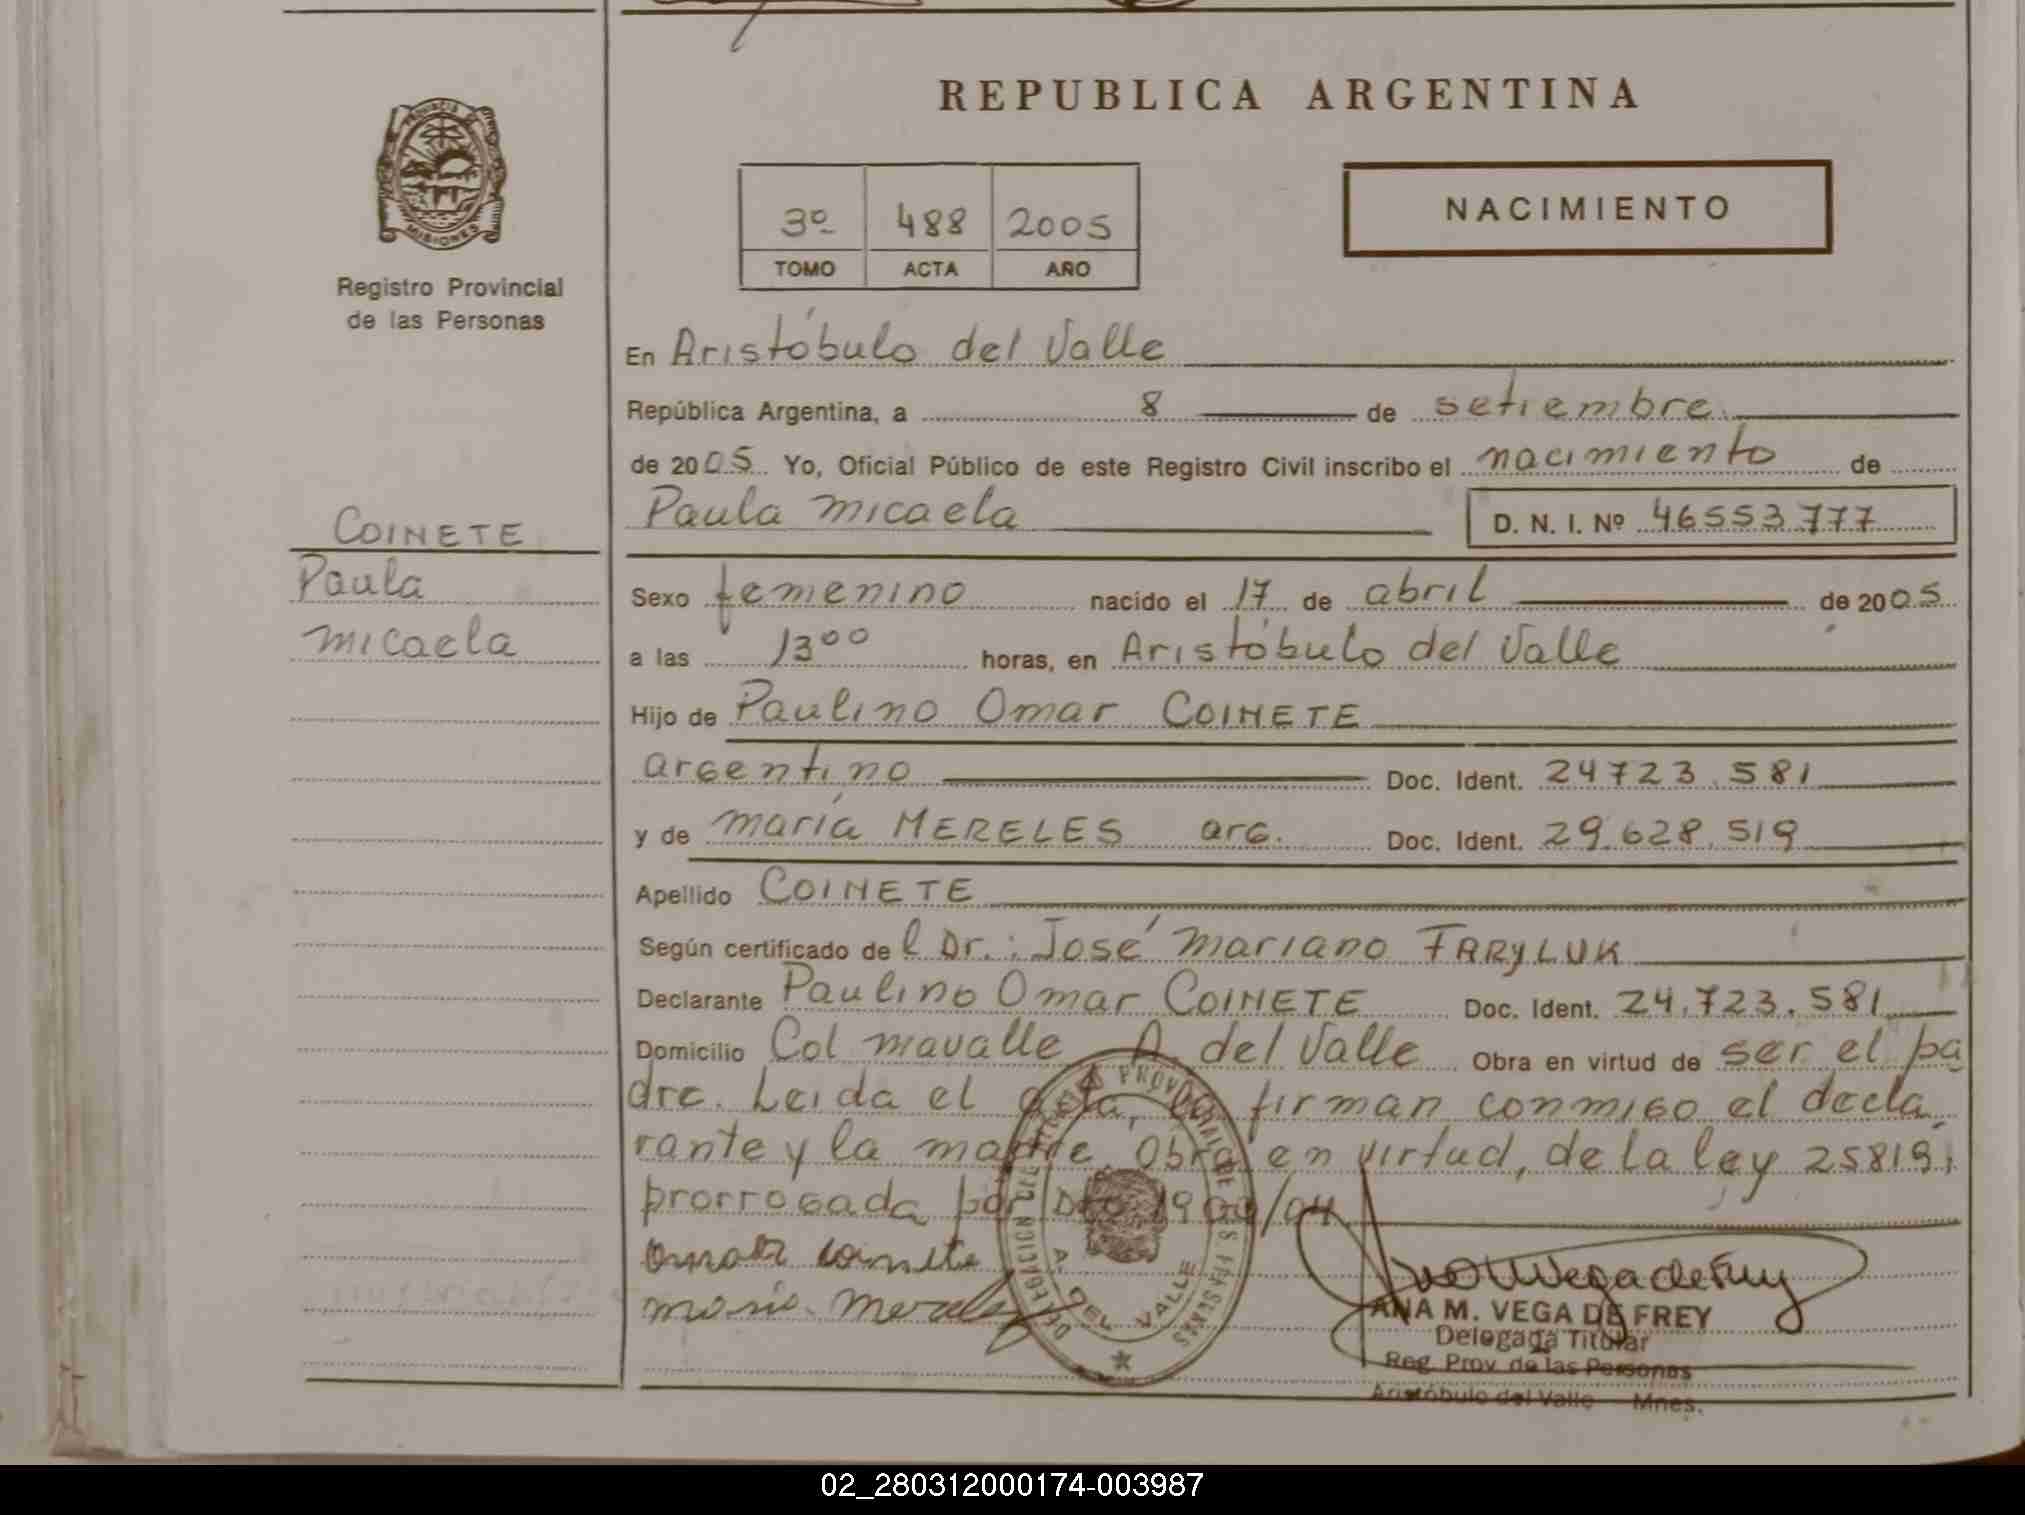 REPUBLICA ARGENTINA
PROVINCIA DE
MISIONES
Registro Provincial
de las Personas
3º 488 2005
TOMO ACTA AÑO
NACIMIENTO
En Aristóbulo del Valle
República Argentina, a 8 de setiembre
de 2005 Yo, Oficial Público de este Registro Civil inscribo el nacimiento de
Paula Micaela
D. N. I. Nº 46553777
COINETE
Paula
Micaela
Sexo femenino nacido el 17 de abril de 2005
a las 13⁰⁰ horas, en Aristóbulo del Valle
Hijo de Paulino Omar COINETE
argentino Doc. Ident. 24723.581
y de María MERELES arg. Doc. Ident. 29.628.519
Apellido COINETE
Según certificado de l Dr.: José Mariano FARYLUK
Declarante Paulino Omar COINETE Doc. Ident. 24.723.581
Domicilio Col Mavalle A. del Valle Obra en virtud de ser el pa
dre. Leida el acta, la firman conmigo el decla
rante y la madre Obra en virtud, de la ley 25819,
prorrogada por Dto /04
Omar Coinete
Maria Mereles
DELEGACION DEL REGISTRO PROVINCIAL DE LAS PERSONAS
A. DEL VALLE
ANA M. VEGA DE FREY
Delegada Titular
Reg. Prov. de las Personas
Aristóbulo del Valle Mnes.
02_280312000174-003987